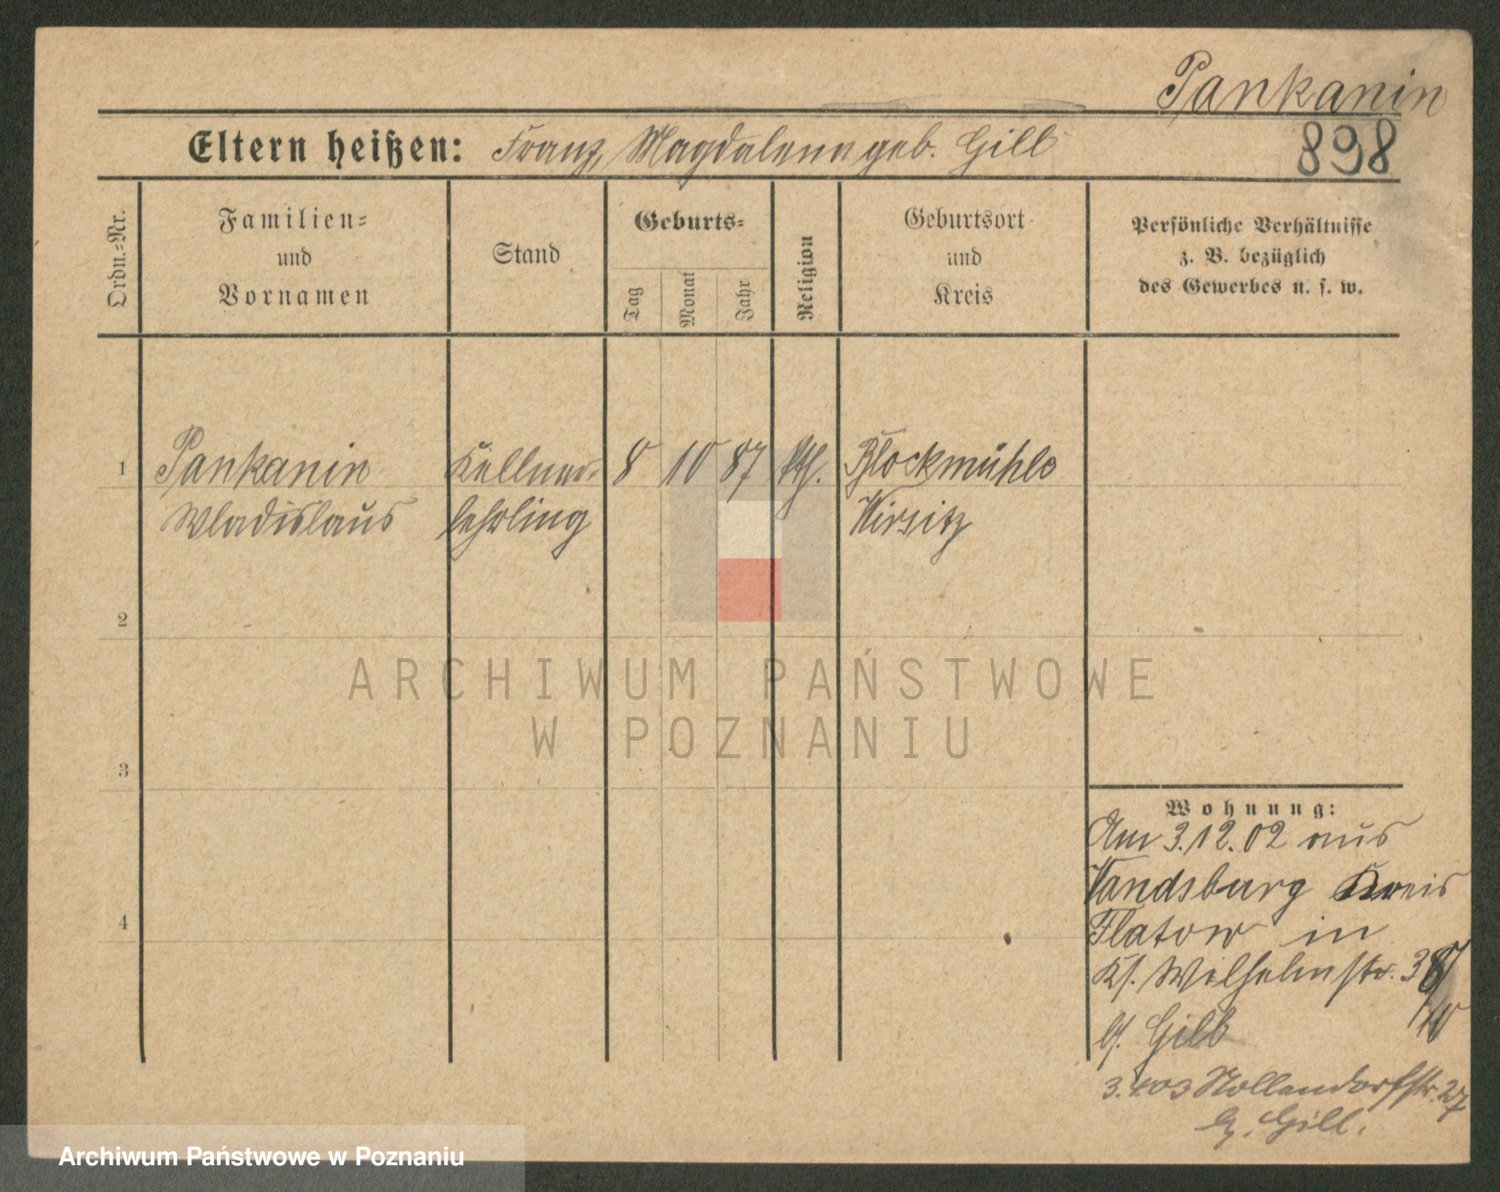 Pankanin
898
Eltern heißen: Franz, Magdalena geb. Gill
Ordn.-Nr.
Familien-
und
Vornamen
Stand
Geburts-
Tag
Monat
Jahr
Religion
Geburtsort
und
Kreis
Persönliche Verhältnisse
z. B. bezüglich
des Gewerbes u. s. w.
1 Pankanin Kellner- 8 10 87 kth. Blockmühle
Wladislaus lehrling Wirsitz
2
3
4
ARCHIWUM PAŃSTWOWE
W POZNANIU
Wohnung:
Am 3.12.02 aus
Vandsburg Kreis
Flatow in
Ks. Wilhelmstr. 38/
10
b/. Gill
3. 4.03 Nollendorfstr. 27
b/. Gill.
Archiwum Państwowe w Poznaniu